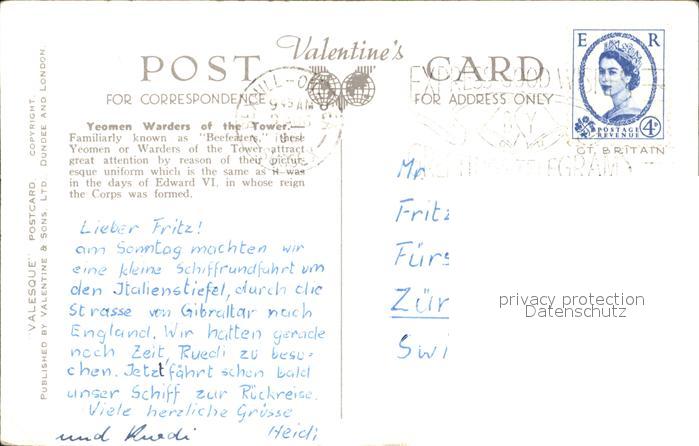 Valentine's
POST CARD
FOR CORRESPONDENCE
FOR ADDRESS ONLY
E R
POSTAGE REVENUE 4D
GT. BRITAIN
Yeomen Warders of the Tower.—
Familiarly known as "Beefeaters," these
Yeomen or Warders of the Tower attract
great attention by reason of their pictur-
esque uniform which is the same as it was
in the days of Edward VI. in whose reign
the Corps was formed.
"VALESQUE" POSTCARD. COPYRIGHT.
PUBLISHED BY VALENTINE & SONS, LTD. DUNDEE AND LONDON.
Lieber Fritz!
am Sonntag machten wir
eine kleine Schiffrundfahrt um
den Italienstiefel, durch die
Strasse von Gibraltar nach
England. Wir hatten gerade
noch Zeit, Ruedi zu besu-
chen. Jetzt fährt schon bald
unser Schiff zur Rückreise.
Viele herzliche Grüsse
Heidi
und Ruedi
Fritz
Fürs
Zür
Swi
privacy protection
Datenschutz